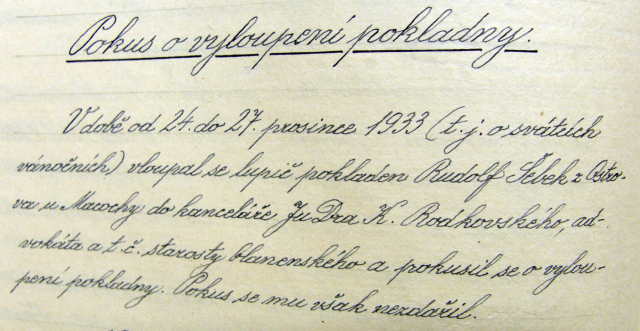 Pokus o vyloupení pokladny.
V době od 24. do 27. prosince 1933 (t. j. o svátcích
vánočních) vloupal se lupič pokladen Rudolf Šebek z Ostro-
va u Macochy do kanceláře JuDra K. Rodkovského, ad-
vokáta a t. č. starosty blanenského a pokusil se o vylou-
pení pokladny. Pokus se mu však nezdařil.